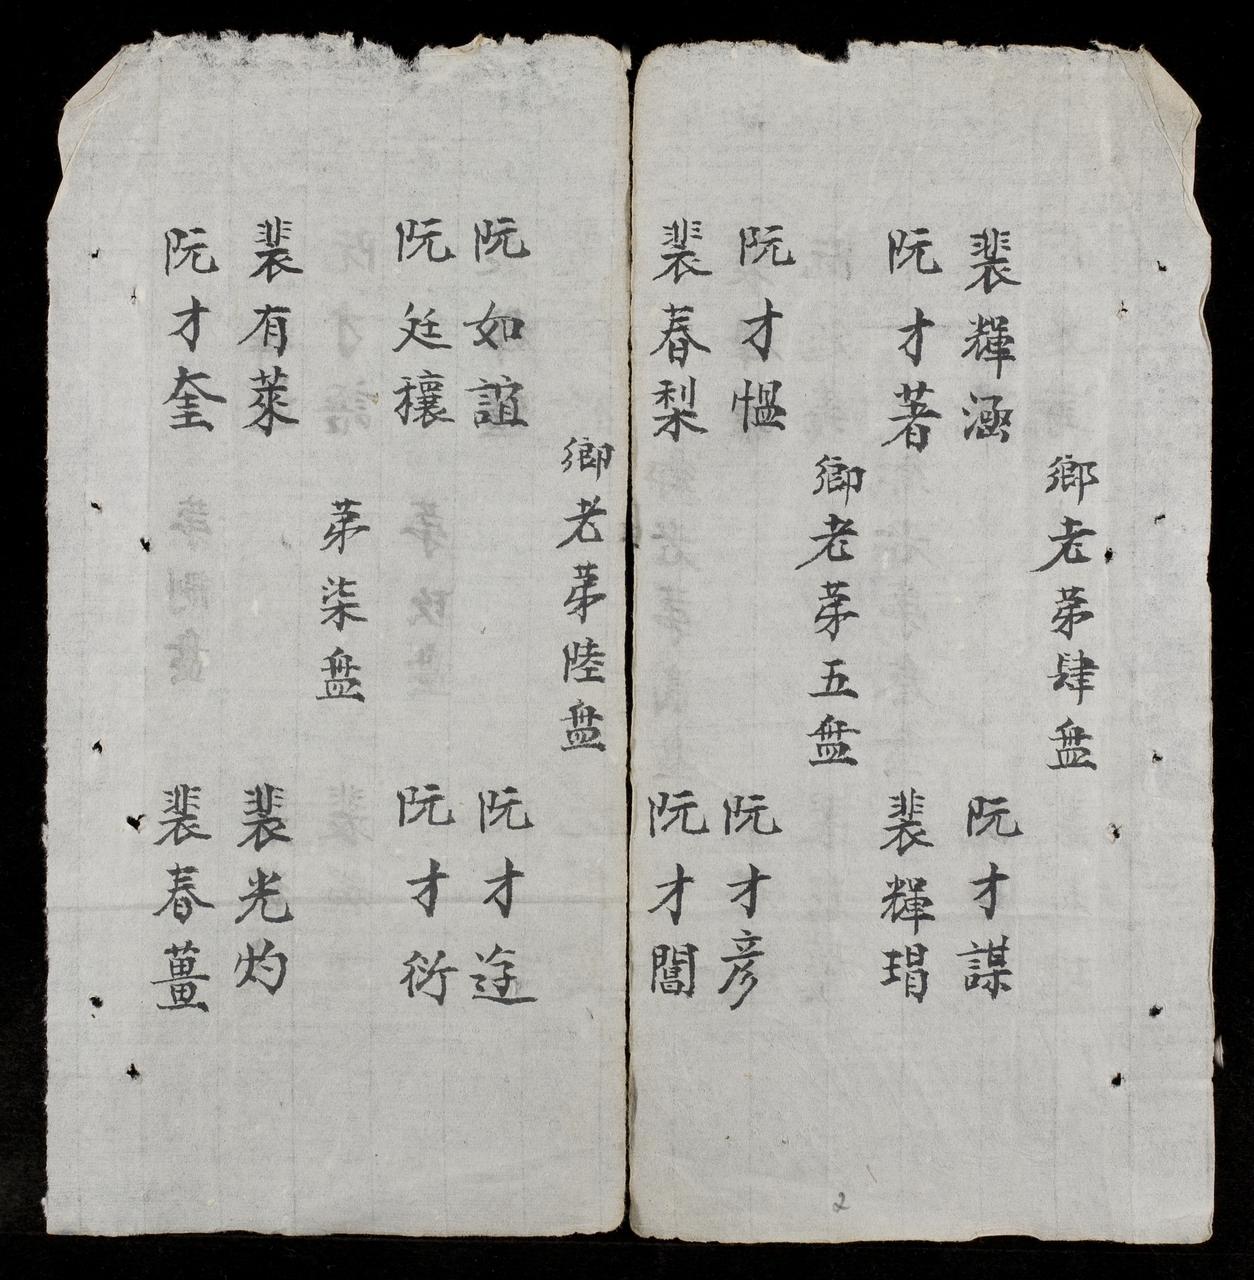 鄉老苐肆盘
裴輝涵
阮才謀
阮才著
裴輝琩
鄉老苐五盘
阮才愠
阮才彦
裴春梨
阮才閶
鄉老苐陸盘
阮如誼
阮才迬
阮廷穰
阮才衍
苐柒盘
裴有萊
裴光灼
阮才奎
裴春薑
2